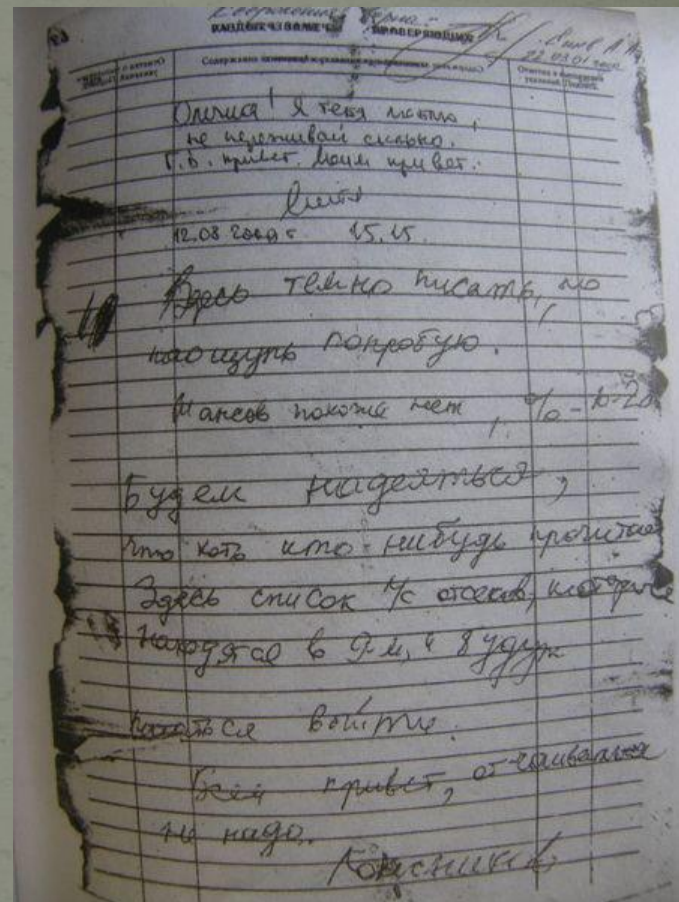 верна
ПРОВЕРЯЮЩИХ
Олечка! Я тебя люблю,
не переживай сильно.
Г.В. привет. Моим привет.
Митя
12.08.2000 г 15.15.
Здесь темно писать, но
наощупь попробую.
Шансов похоже нет, % - 10-20
Будем надеяться,
что хоть кто-нибудь прочитает
Здесь список л/с отсеков, которые
находятся в 9-м, и будут
пытаться выйти.
Всем привет, отчаиваться
не надо.
Колесников